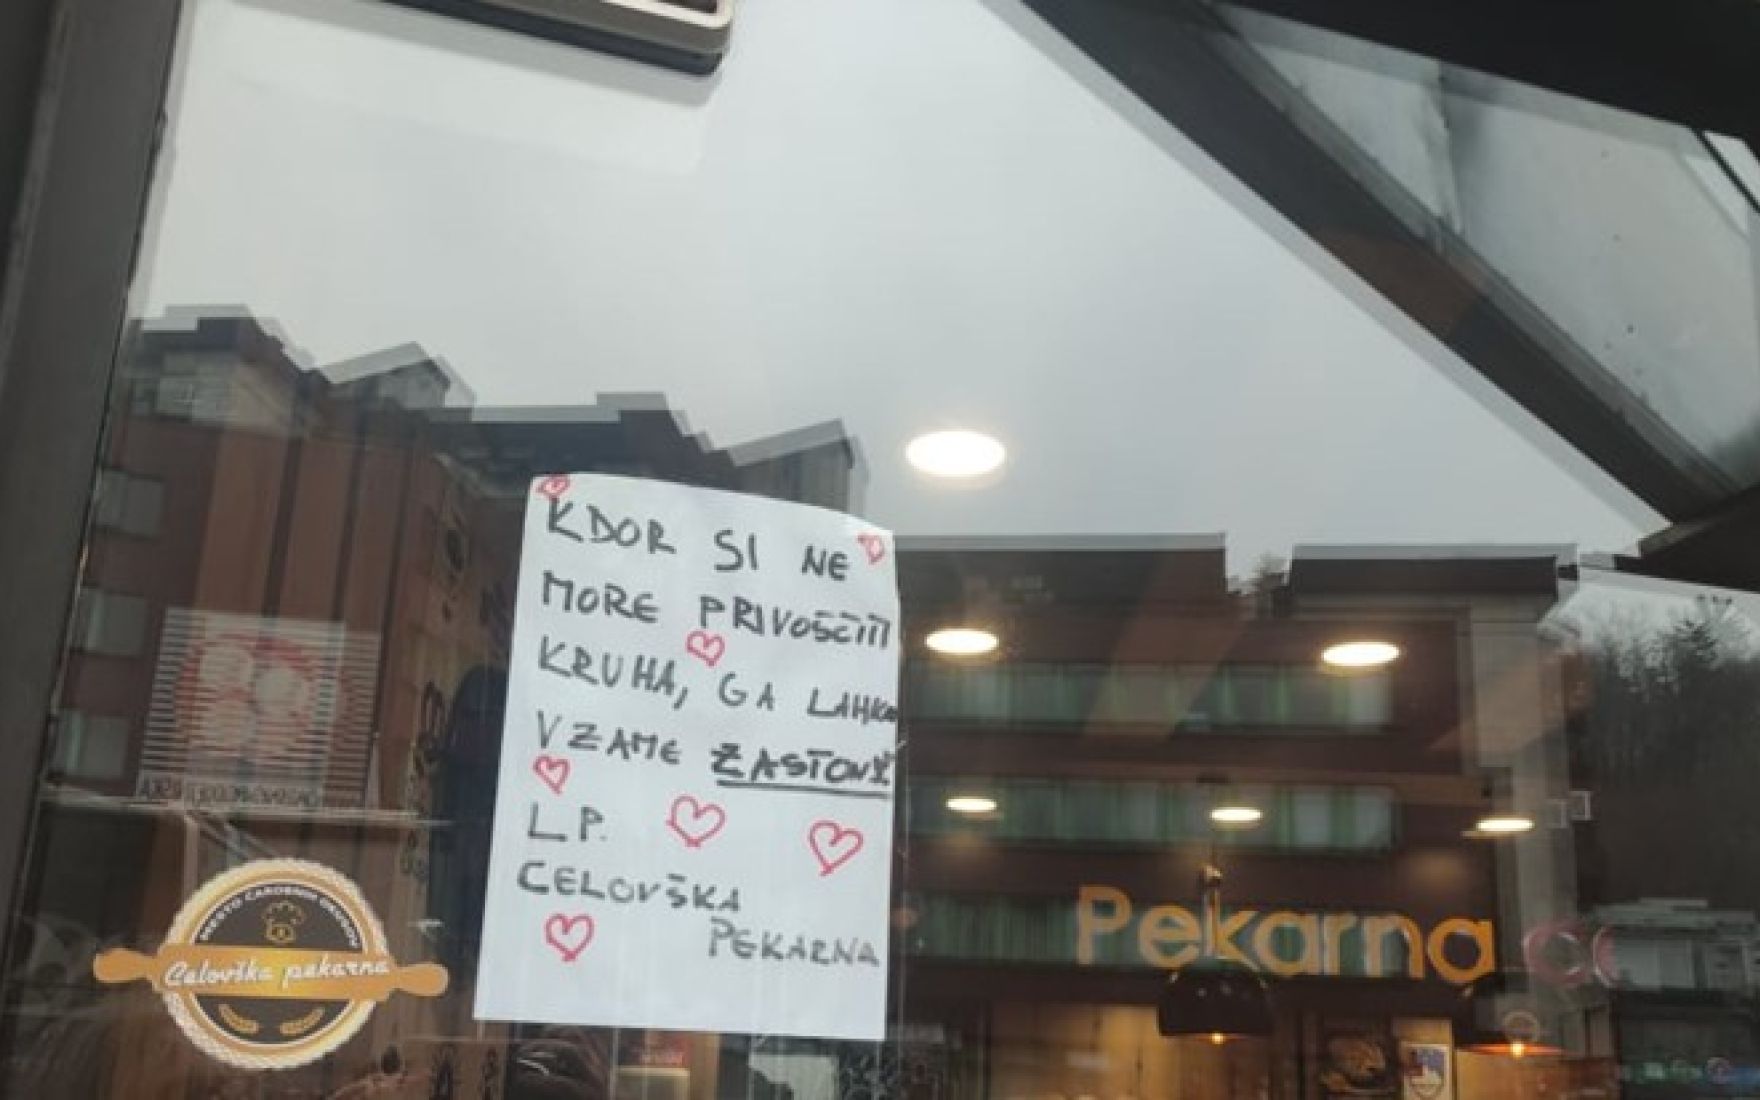 KDOR SI NE
MORE PRIVOŠČITI
KRUHA, GA LAHKO
VZAME ZASTONJ
LP.
CELOVŠKA
PEKARNA
Celovška pekarna
Pekarna